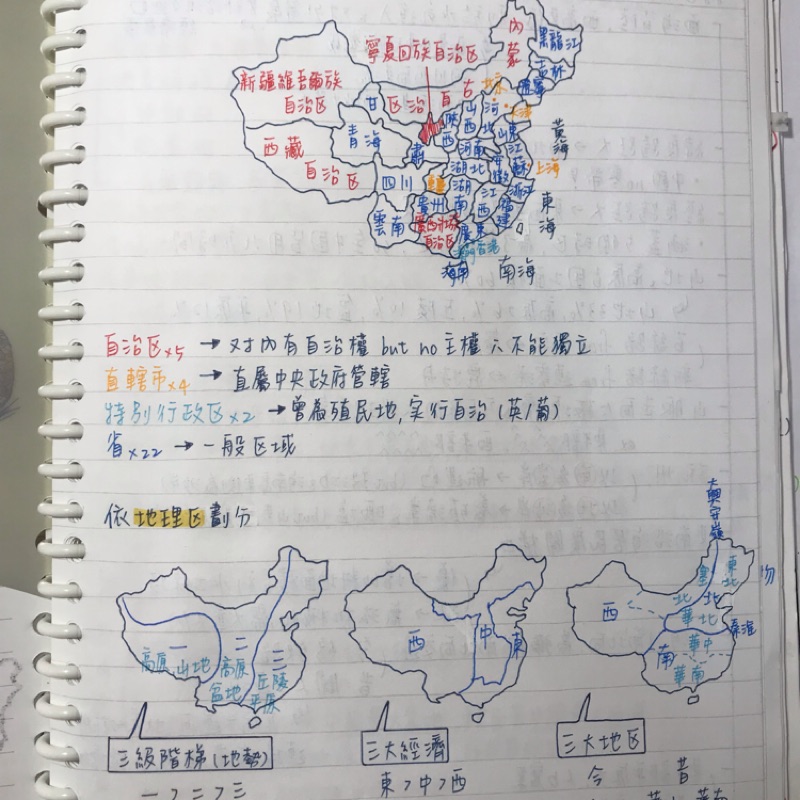 內蒙
黑龍江
吉林
遼寧
寧夏回族自治区
新疆維吾爾族
自治区
甘
区
治
自
古
北京
天津
陝西
山西
河北
山東
黃海
青海
肅
河南
江蘇
安徽
上海
西藏
自治区
四川
重慶
湖北
浙江
貴州
湖南
江西
福建
東海
雲南
廣西壯族
自治区
廣東
澳門香港
海南
南海
自治区x5 → 对內有自治權 but no 主權 ∴不能獨立
直轄市x4 → 直屬中央政府管轄
特別行政区x2 → 曾為殖民地,实行自治(英/葡)
省x22 → 一般区域
依地理区劃分
大興安嶺
一
高原山地
二
高原
盆地
三
丘陵
平原
西
中
東
東北
塞北
西
北
華北
秦淮
華中
南
華南
三級階梯(地勢)
三大經濟
三大地区
一>二>三
東>中>西
今 昔